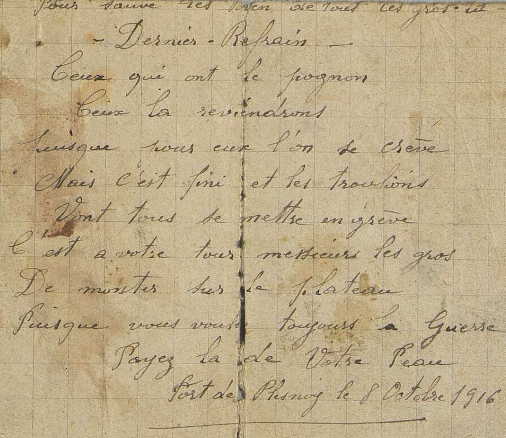 Pour sauve les bien de tous les gros
- Dernier - Refrain -
Ceux qui ont le pognon
Ceux la reviendrons
Puisque pour eux l'on se crève
Mais c'est fini et les troufions
Vont tous se mettre en grève
C'est a votre tour messieurs les gros
De monter sur le plateau
Puisque vous toujours la Guerre
Payez la de Votre Peau
Fort de le 8 Octobre 1916